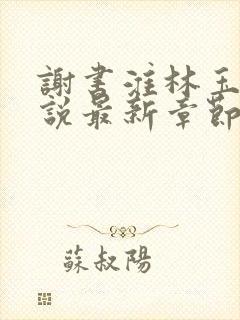 謝書淮林玉
說最新章節
蘇叔陽